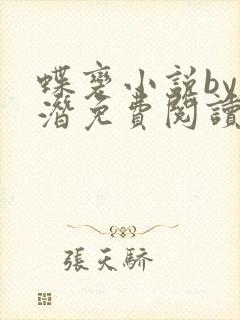 蝶裔小説by
潛免費閱讀
張天驕